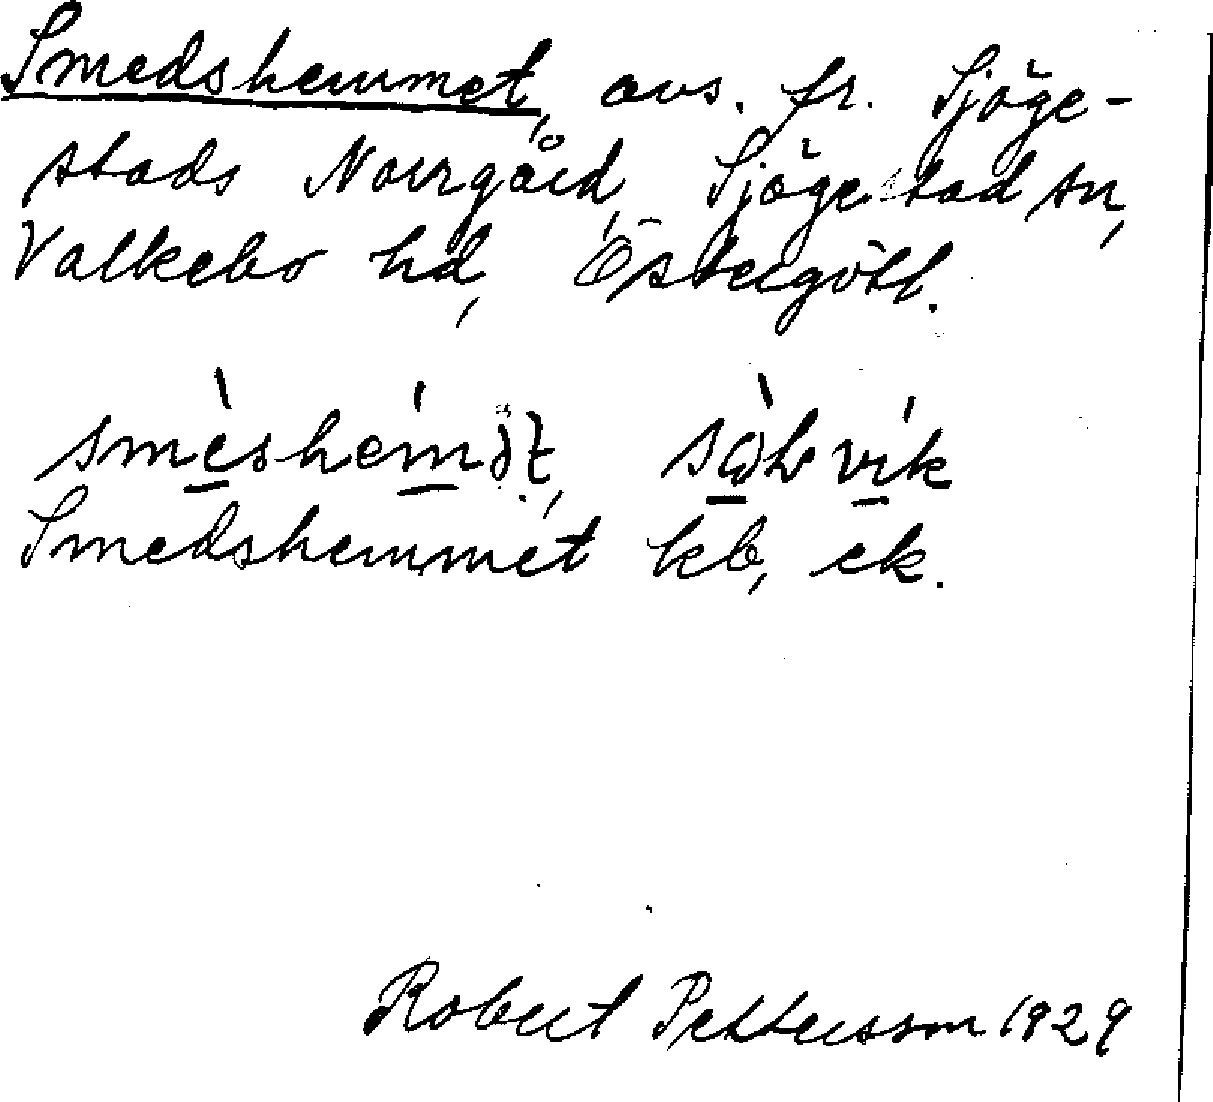 Smedshemmet, avs. fr. Sjöge-
stads Norrgård, Sjögestad sn,
Valkebo hd, Östergötl.
Smedshemmet kb, ek.
Robert Pettersson 1929